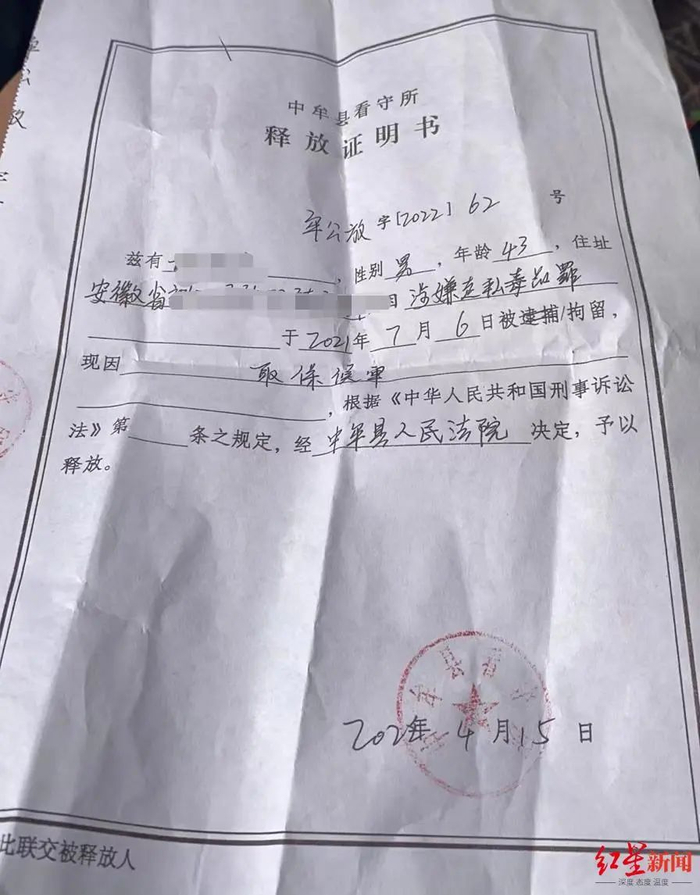 中牟县看守所
释放证明书
牟公放字[2022]62号
兹有 ，性别男，年龄43，住址
安徽省 涉嫌走私毒品罪
于2021年7月6日被逮捕/拘留，
现因取保候审
，根据《中华人民共和国刑事诉讼
法》第 条之规定，经中牟县人民法院决定，予以
释放。
4月15日
此联交被释放人
红星新闻
深度 态度 温度